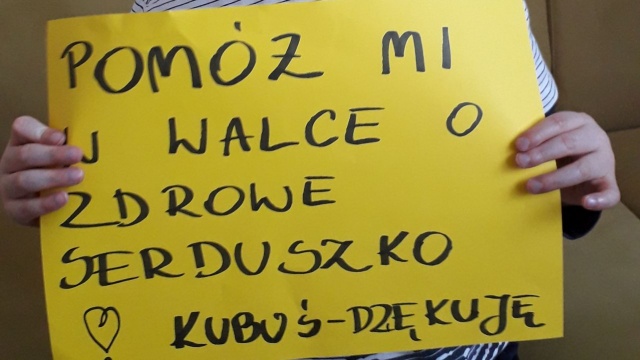 POMÓŻ MI
W WALCE O
ZDROWE
SERDUSZKO
♡ KUBUŚ-DZĘKUJĘ